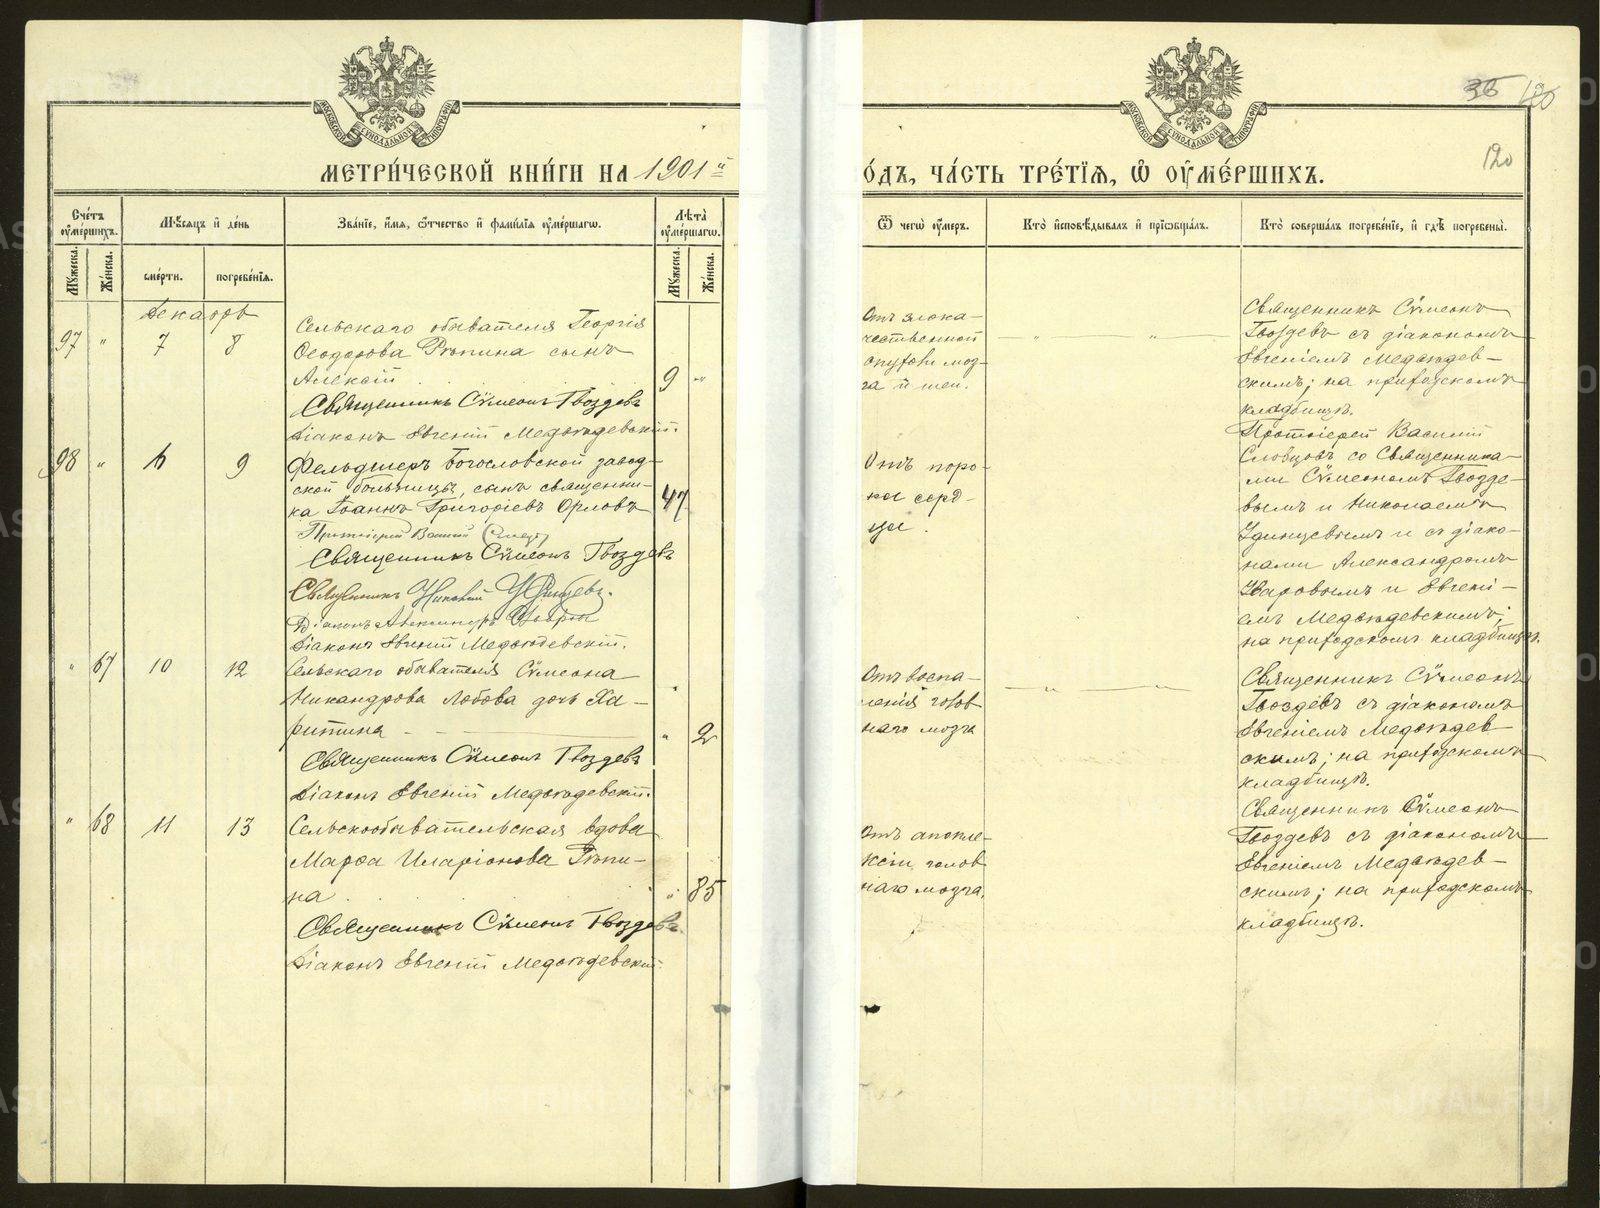 МЕТРИ́ЧЕСКОЙ КНИ́ГИ НА 1901й
О́ДЪ, ЧА́СТЬ ТРЕ́ТЇѦ, Ѡ҆ ОУ҆МЕ́РШИХЪ.
36
120
Сче́тъ оу҆ме́ршихъ.
Мѣ́сяцъ и҆ де́нь
Зва́нїе, и҆́мя, ѻ҆́тчество и҆ фами́лїя оу҆ме́ршагѡ.
Лѣ́та оу҆ме́ршагѡ.
Ѿ чегѡ̀ оу҆́меръ.
Кто̀ и҆сповѣ́дывалъ и҆ прїѡбща́лъ.
Кто̀ соверша́лъ погребе́нїе, и҆ гдѣ̀ погребены̀.
Мꙋ́жеска.
Же́нска.
сме́рти.
погребе́нїя.
Мꙋ́жеска.
Же́нска.
Декабрь
97 " 7 8
Сельскаго обывателя Георгія
Ѳеодорова сынъ
Алексій 9 "
Священникъ Сѵмеонъ Гвоздевъ
Діаконъ Евгеній Медвѣдевскій.
Отъ злока-
чественной
опухоли моз-
га и шеи.
Священникъ Сѵмеонъ
Гвоздевъ съ діакономъ
Евгеніемъ Медвѣдев-
скимъ; на приходскомъ
кладбищѣ.
98 " 6 9
Фельдшеръ Богословской завод-
ской больницы, сынъ священни-
ка Іоаннъ Григоріевъ Орловъ 47
Протоіерей Василій Словцовъ
Священникъ Сѵмеонъ Гвоздевъ
Священникъ Николай Удинцевъ.
Діаконъ Александръ Уваровъ
Діаконъ Евгеній Медвѣдевскій.
Отъ поро-
ка серд-
ца.
Протоіерей Василій
Словцовъ со Священника-
ми Сѵмеономъ Гвозде-
вымъ и Николаемъ
Удинцевымъ и съ діако-
нами Александромъ
Уваровымъ и Евгені-
емъ Медвѣдевскимъ;
на приходскомъ кладбищѣ.
" 67 10 12
Сельскаго обывателя Сѵмеона
Никандрова Лобова дочь Ха-
ритина " 2
Священникъ Сѵмеонъ Гвоздевъ
Діаконъ Евгеній Медвѣдевскій.
Отъ воспа-
ленія голов
наго мозга
Священникъ Сѵмеонъ
Гвоздевъ съ діакономъ
Евгеніемъ Медвѣдев
скимъ; на приходскомъ
кладбищѣ.
" 68 11 13
Сельскообывательская вдова
Марѳа Иларіонова Рѣпи-
на " 85
Священникъ Сѵмеонъ Гвоздевъ
Діаконъ Евгеній Медвѣдевскій.
Отъ апопле-
ксіи голов
наго мозга.
Священникъ Сѵмеонъ
Гвоздевъ съ діакономъ
Евгеніемъ Медвѣдев-
скимъ; на приходскомъ
кладбищѣ.